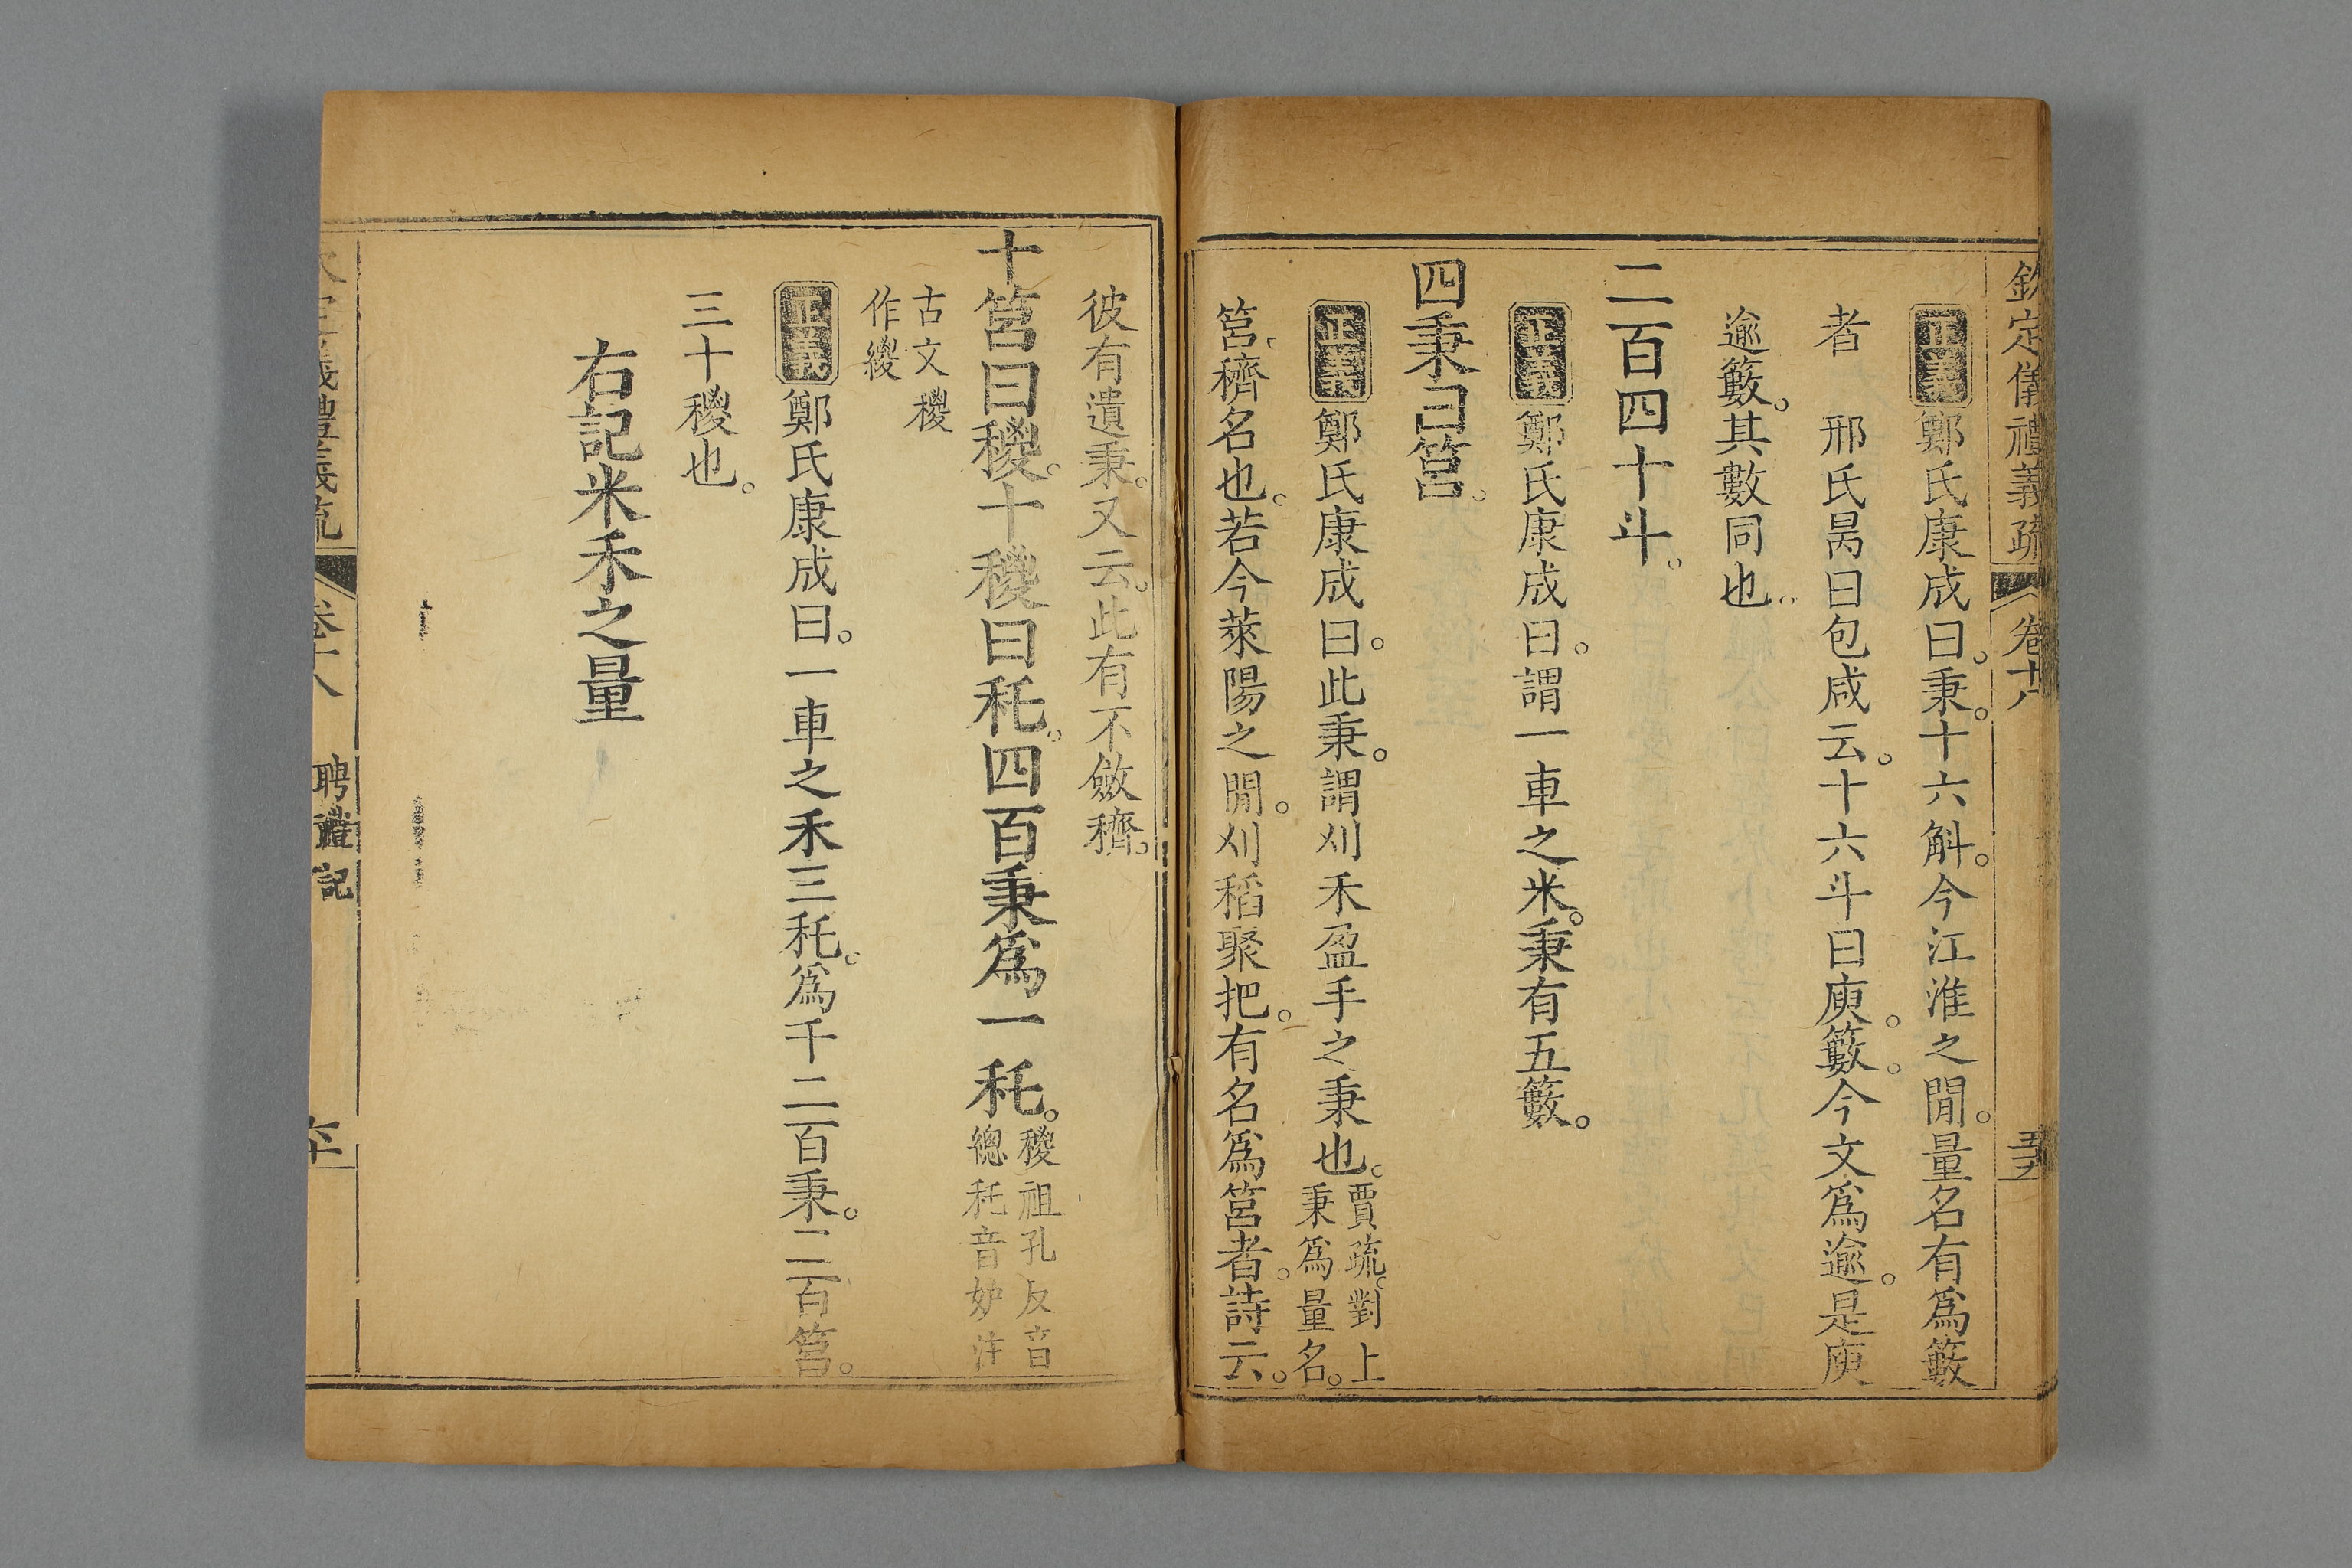 欽定儀禮義疏 卷十八
正義鄭氏康成曰。秉。十六斛。今江淮之閒。量名有爲籔
者 邢氏昺曰包咸云。十六斗曰庾。籔。今文爲逾。是庾
逾籔。其數同也。
二百四十斗。
正義鄭氏康成曰。謂一車之米。秉有五籔。
四秉曰筥。
正義鄭氏康成曰。此秉。謂刈禾盈手之秉也。賈疏。對上
秉爲量名。
筥穧名也。若今萊陽之閒。刈稻聚把。有名爲筥者。詩云。
彼有遺秉。又云。此有不斂穧。
十筥曰稯。十稯曰秅。四百秉爲一秅。稯祖孔反音
緫秅音妒注
古文稯
作緵
正義鄭氏康成曰。一車之禾三秅。爲千二百秉。三百筥。
三十稯也。
右記米禾之量
定儀禮義疏 卷十八 聘禮記